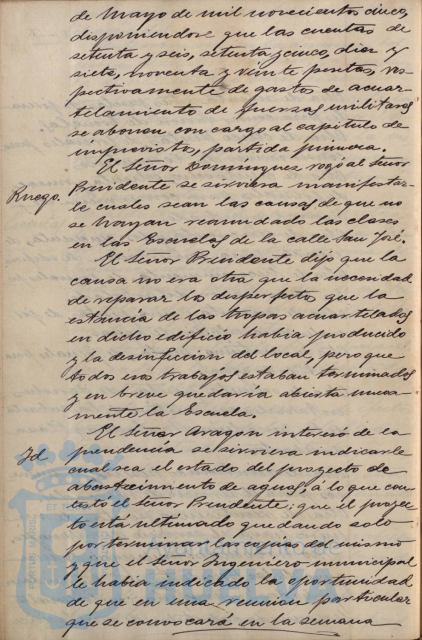 de Mayo de mil novecientos cinco,
disponiendose que las cuentas de
setenta y seis, setenta y cinco, diez y
siete, noventa y veinte pesetas, res-
pectivamente de gastos de acuar-
telamiento de fuerzas militares
se abonen con cargo al capitulo de
imprevistos, partida primera.
El Señor Dominguez rogó al Señor
Ruego. Presidente se sirviera manifestar-
le cuales sean las causas de que no
se hayan reanudado las clases
en las Escuelas de la calle San José.
El Señor Presidente dijo que la
causa no era otra que la necesidad
de reparar los desperfectos que la
estancia de las tropas acuarteladas
en dicho edificio habia producido
y la desinfeccion del local, pero que
todos esos trabajos estaban terminados
y en breve quedaria abierta nueva-
mente la Escuela.
El Señor Aragon interesó de la
Id presidencia se sirviera indicarle
cual sea el estado del proyecto de
abastecimiento de aguas, á lo que con-
testó el Señor Presidente: que el proyec-
to está ultimado quedando solo
por terminar las copias del mismo
y que el Señor Ingeniero municipal
le habia indicado la oportunidad
de que en una reunion particular
que se convocará en la semana